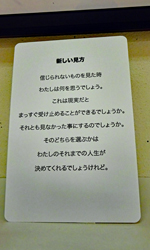 新しい見方
信じられないものを見た時
わたしは何を思うでしょう。
これは現実だと
まっすぐ受け止めることができるでしょうか。
それとも見なかった事にするのでしょうか。
そのどちらを選ぶかは
わたしのそれまでの人生が
決めてくれるでしょうけれど。